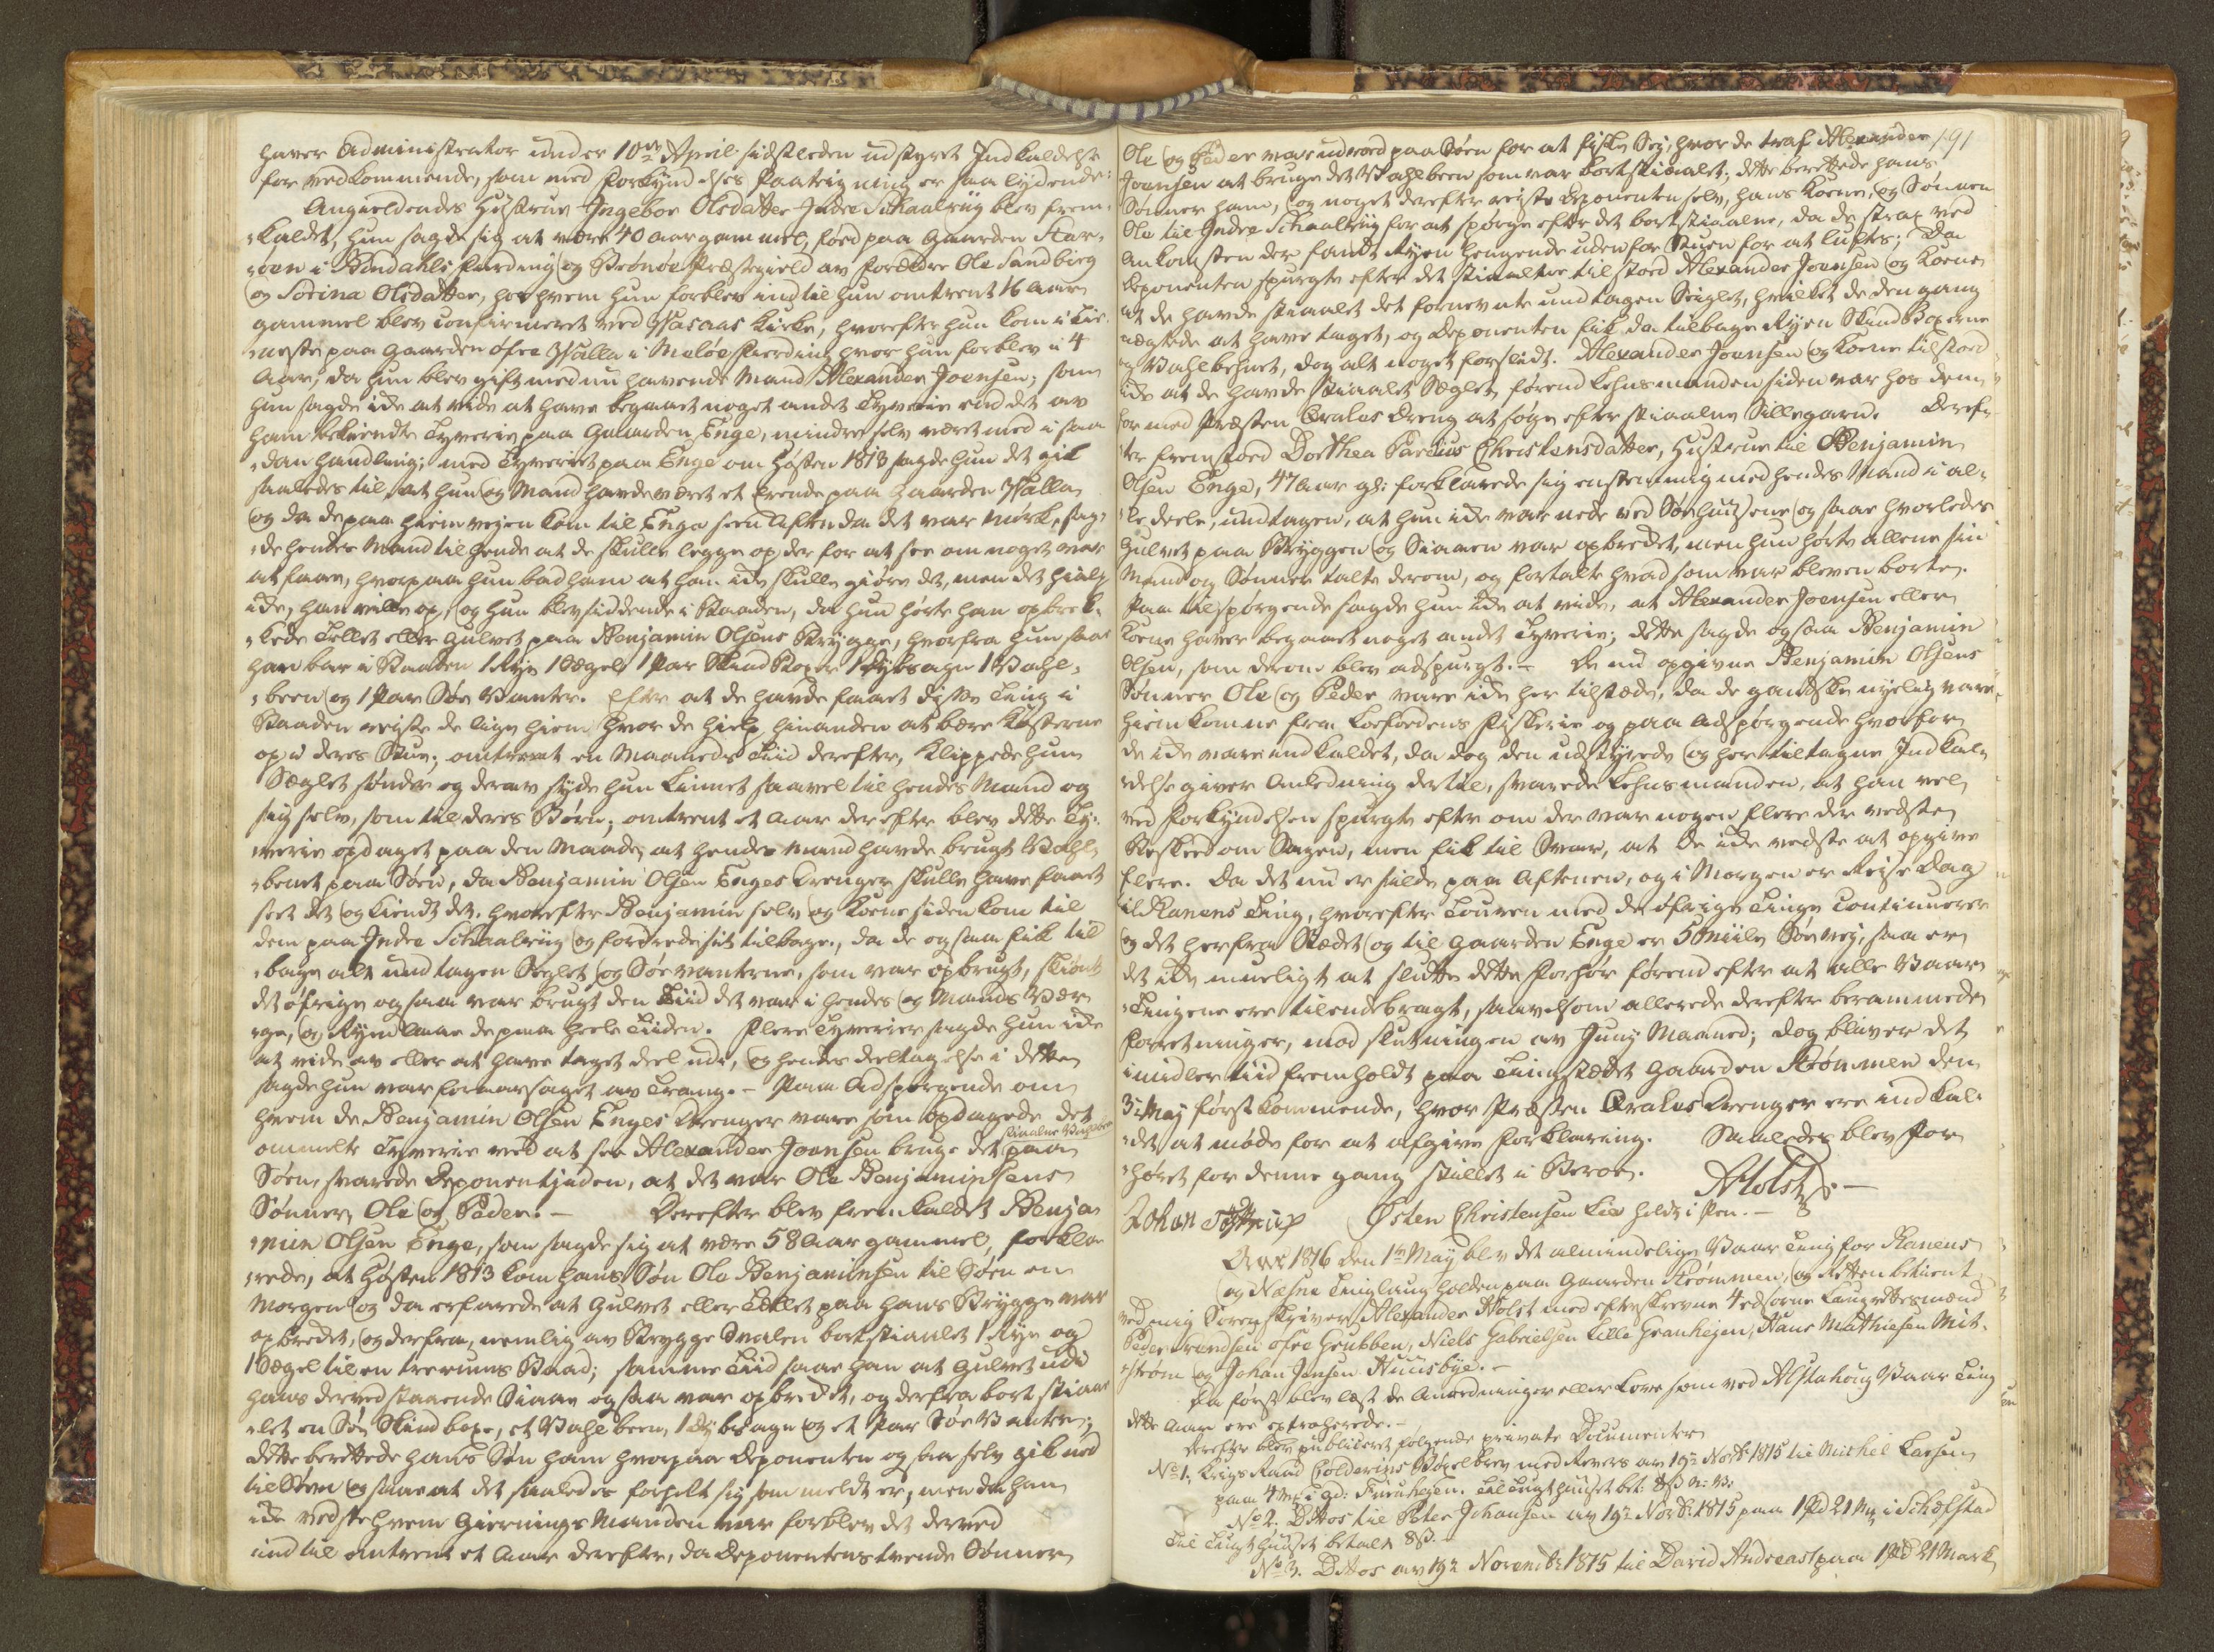 haver Administrator under 10de April sidstleden udstyret Indkaldelse
for vedkommende, som med Forkyndelses Paategning er saa lydende:
Angieldendes Hustrue Ingebor Olsdatter Indre Schaalvig blev frem-
kaldet, hun sagde sig at være 40 aar gammel, fød paa Gaarden Har-
röen i Bindahls fierding og Brønøe Præstegield av forældre Ole Sandberg
og Sorina Olsdatter, hos hvem hun forblev indtil hun omtrent 16 Aar
gammel blev Confirmeret ved Vasaas Kirke, hvorefter hun kom i Tie-
neste paa Gaarden øfre Valla i Meløe Fierding hvor hun forblev i 4
Aar, da hun blev gift med nu havende Mand Alexander Joensen, som
hun sagde ikke at vide at have begaaet noget andet Tyverie end det av
ham bekiendte Tyverie paa Gaarden Enge, mindre selv været med i saa-
dan handling; med Tyveriet paa Enge om Høsten 1813 sagde hun det gik
saaledes til, at hun og Mand havde været et Erende paa Gaarden Valla
og da de paa hiemvejen kom til Enge seen Aften da det var Mørk, sag-
de hendes Mand til hende at de skulle legge op der for at see om noget var
at faae, hvorpaa hun bad ham at han ikke skulle giøre det, men det hialp
ikke, han vilde op, og hun blev siddende i Baaden, da hun hørte han opbrek-
kede Tellet eller Gulvet paa Benjamin Olsens Brygge, hvorfra hun saae
han bar i Baaden 1 Rye 1 Segel 1 Par Skind Boxer 1 Dybsagn 1 Vahl-
been og 1 Par Søe Vanter. Efter at de havde faaet disse Ting i
Baaden reiste de lige hiem hvor de hialp hinanden at bære Kosterne
op i deres Stue; omtrent en Maaneds Tiid derefter, klippede hun
Seglet sønder og derav syede hun Linnet saavel til hendes Mand og
sig selv, som til deres Børn; omtrent et Aar derefter blev dette Ty-
verie opdaget paa den Maade, at hendes Mand havde brugt Vahl-
benet paa Søen, da Benjamin Olsen Enges Drenger skulle have faaet
seet det og kiendt det. hvorefter Benjamin selv og Kone siden kom til
dem paa Indre Schaalvig og fordrede sit tilbage, da de ogsaa fik til-
bage alt undtagen Seglet og Søevanterne, som var opbrugt, skiønt
det øfrige ogsaa var brugt den Tiid det var i hendes og Mands Vær-
ge, og Ryen laae de paa heele Tiiden. Flere Tyverier sagde hun ikke
at vide av eller at have taget deel udi, og hendes deeltagelse i dette
sagde hun var foraarsaget av Trang. – Paa Adspørgende om
hvem de Benjamin Olsen Enges Drenger vare som opdagede det
ommelte Tyverie ved at see Alexander Joensen bruge det stiaalne Vahlbeen paa
Søen, svarede Deponentinden, at det var Ole Benjaminsens
Sønner, Ole og Peder. – Derefter blev fremkaldet Benja-
min Olsen Enge, som sagde sig at være 58 Aar gammel, forkla-
rede, at Høsten 1813 kom hans Søn Ole Benjaminsen til Søen en
Morgen og da erfarede at Gulvet eller Tellet paa hans Brygge var
opbredet, og derfra, nemlig av Brygge Svalen bortstiaalet 1 Rye og
1 Segel til en treerums Baad; samme Tiid saae han at Gulvet udi
hans derved staaende Siaae ogsaa var opbredet, og derfra bortstiaa-
let en Søe Skindboxe, et Vahlbeen, 1 dybsagn og et Par Søe Vanter;
dette berettede hans Søn ham hvorpaa Deponenten ogsaa selv gik ned
til Søen og saae at det saaledes forholt sig som meldt er, men da han
ikke vedste hvem Giernings Manden var forblev det derved
indtil omtrent et Aar derefter, da Deponentens tvende Sønner
191
Ole og Peder var udroed paa Søen for at fiske Sej, hvor de traf Alexander
Joensen at bruge det Vahlbeen som var bortstiaalet; dette berettede hans
Sønner ham, og noget derefter reiste Deponenten selv, hans Kone, og Sønnen
Ole til Indre Schaalvig for at spørge efter det bortstiaalne, da de strax ved
Ankomsten der fandt Ryen hengende udenfor Stuen for at luftes; Da
Deponenten spurgte efter det stiaalne tilstoed Alexander Joensen og Kone
at de havde stiaalet det fornevnte undtagen Seiglet, hvilket de den gang
nægtede at have taget, og Deponenten fik da tilbage Ryen Skindboxerne
og Vahlbehnet, dog alt noget forslidt. Alexander Joensen og Kone tilstoed
ikke at de havde stiaalet Seglet, førend Lehnsmanden siden var hos dem
for med Præsten Qvales Dreng at søge efter stiaalne Sillegarn. Deref-
ter fremstoed Dorthea Parelius Christensdatter, Hustrue til Benjamin
Olsen Enge, 47 Aar gl: forklarede sig enstemmig med hendes Mand i al-
le deele, undtagen, at hun ikke var nede ved Søehuusene og saae hvorledes
Gulvet paa Bryggen og Siaaen var opbredet, men hun hørte allene sin
Mand og Sønner talte derom, og fortalte hvad som var bleven borte.
Paa tilspørgende sagde hun ikke at vide, at Alexander Joensen eller
Kone haver begaaet noget andet Tyverie; dette sagde ogsaa Benjamin
Olsen, som derom blev adspurgt. – De nu opgivne Benjamin Olsens
Sønner Ole og Peder vare ikke her tilstæde, da de gandske nyelig vare
hiemkomne fra Lofodens Fiskerie og paa Adspørgende hvorfor
de ikke vare indkaldet, da dog den udstyrede og her tiltagne Indkal-
delse giver Anledning dertil, svarede Lehnsmanden, at han vel
ved Forkyndelsen spurgte efter om der var nogen flere der vedste
Beskeed om Sagen, men fik til Svar, at de ikke vedste at opgive
flere. Da det nu er silde paa Aftenen, og i Morgen er Reise Dag
til Ranens Ting, hvorefter Touren med de øfrige Tinge Continuerer
og det herfra Stædet og til Gaarden Enge er 5 Miile Søevej, saa er
det ikke mueligt at slutte dette Forhør førend efter at alle Vaar-
Tingene ere tilendebragt, saavelsom allerede derefter berammede
Forretninger, mod slutningen av Juny Maaned; dog bliver det
imidlertiid fremholdt paa Tingstædet Gaarden Strømmen den
3 May først kommende, hvor Præsten Qvales Drenger ere indkal-
det at møde for at afgive Forklaring. Saaledes blev For-
høret for denne gang stillet i Beroe.
AHolst –
Johan Tøttrup Østen Christensen Lie holdt i Pen. –
Aar 1816 den 1te May blev det almindelige Vaar Ting for Ranens
og Næsne Tinglaug holden paa Gaarden Strømmen, og Retten betient
ved mig Sorenskriver Alexander Holst med efterskrevne 4 edsorne Laugrettesmænd
Peder øfre Grubben, Niels Gabrielsen Lille Granhejen, Hans Mathiesen Mit-
strøm og Johan Jensen Huusbye. –
Da først blev læst de Anordninger eller Love som ved Alstahoug Vaar Ting
dette Aar ere extraherede. –
Derefter blev publiceret følgende private Documenter
No 1. Krigsraad Coldevins Bøxelbrev med Revers av 19de Novbr 1815 til Michel Larsen
paa 4 Mk i gd: Furuhejen. Til Tugthuuset bet: 8 ß N: V:
No 2. Dittos til Peter Johansen av 19de Novbr 1815 paa 1 Pd 21 Mk i Schelstad
Til Tugthuuset betalt 8 ß. –
No 3. Dittos av 19de Novembr 1815 til David Andreas paa 1 Pd 21 Mark